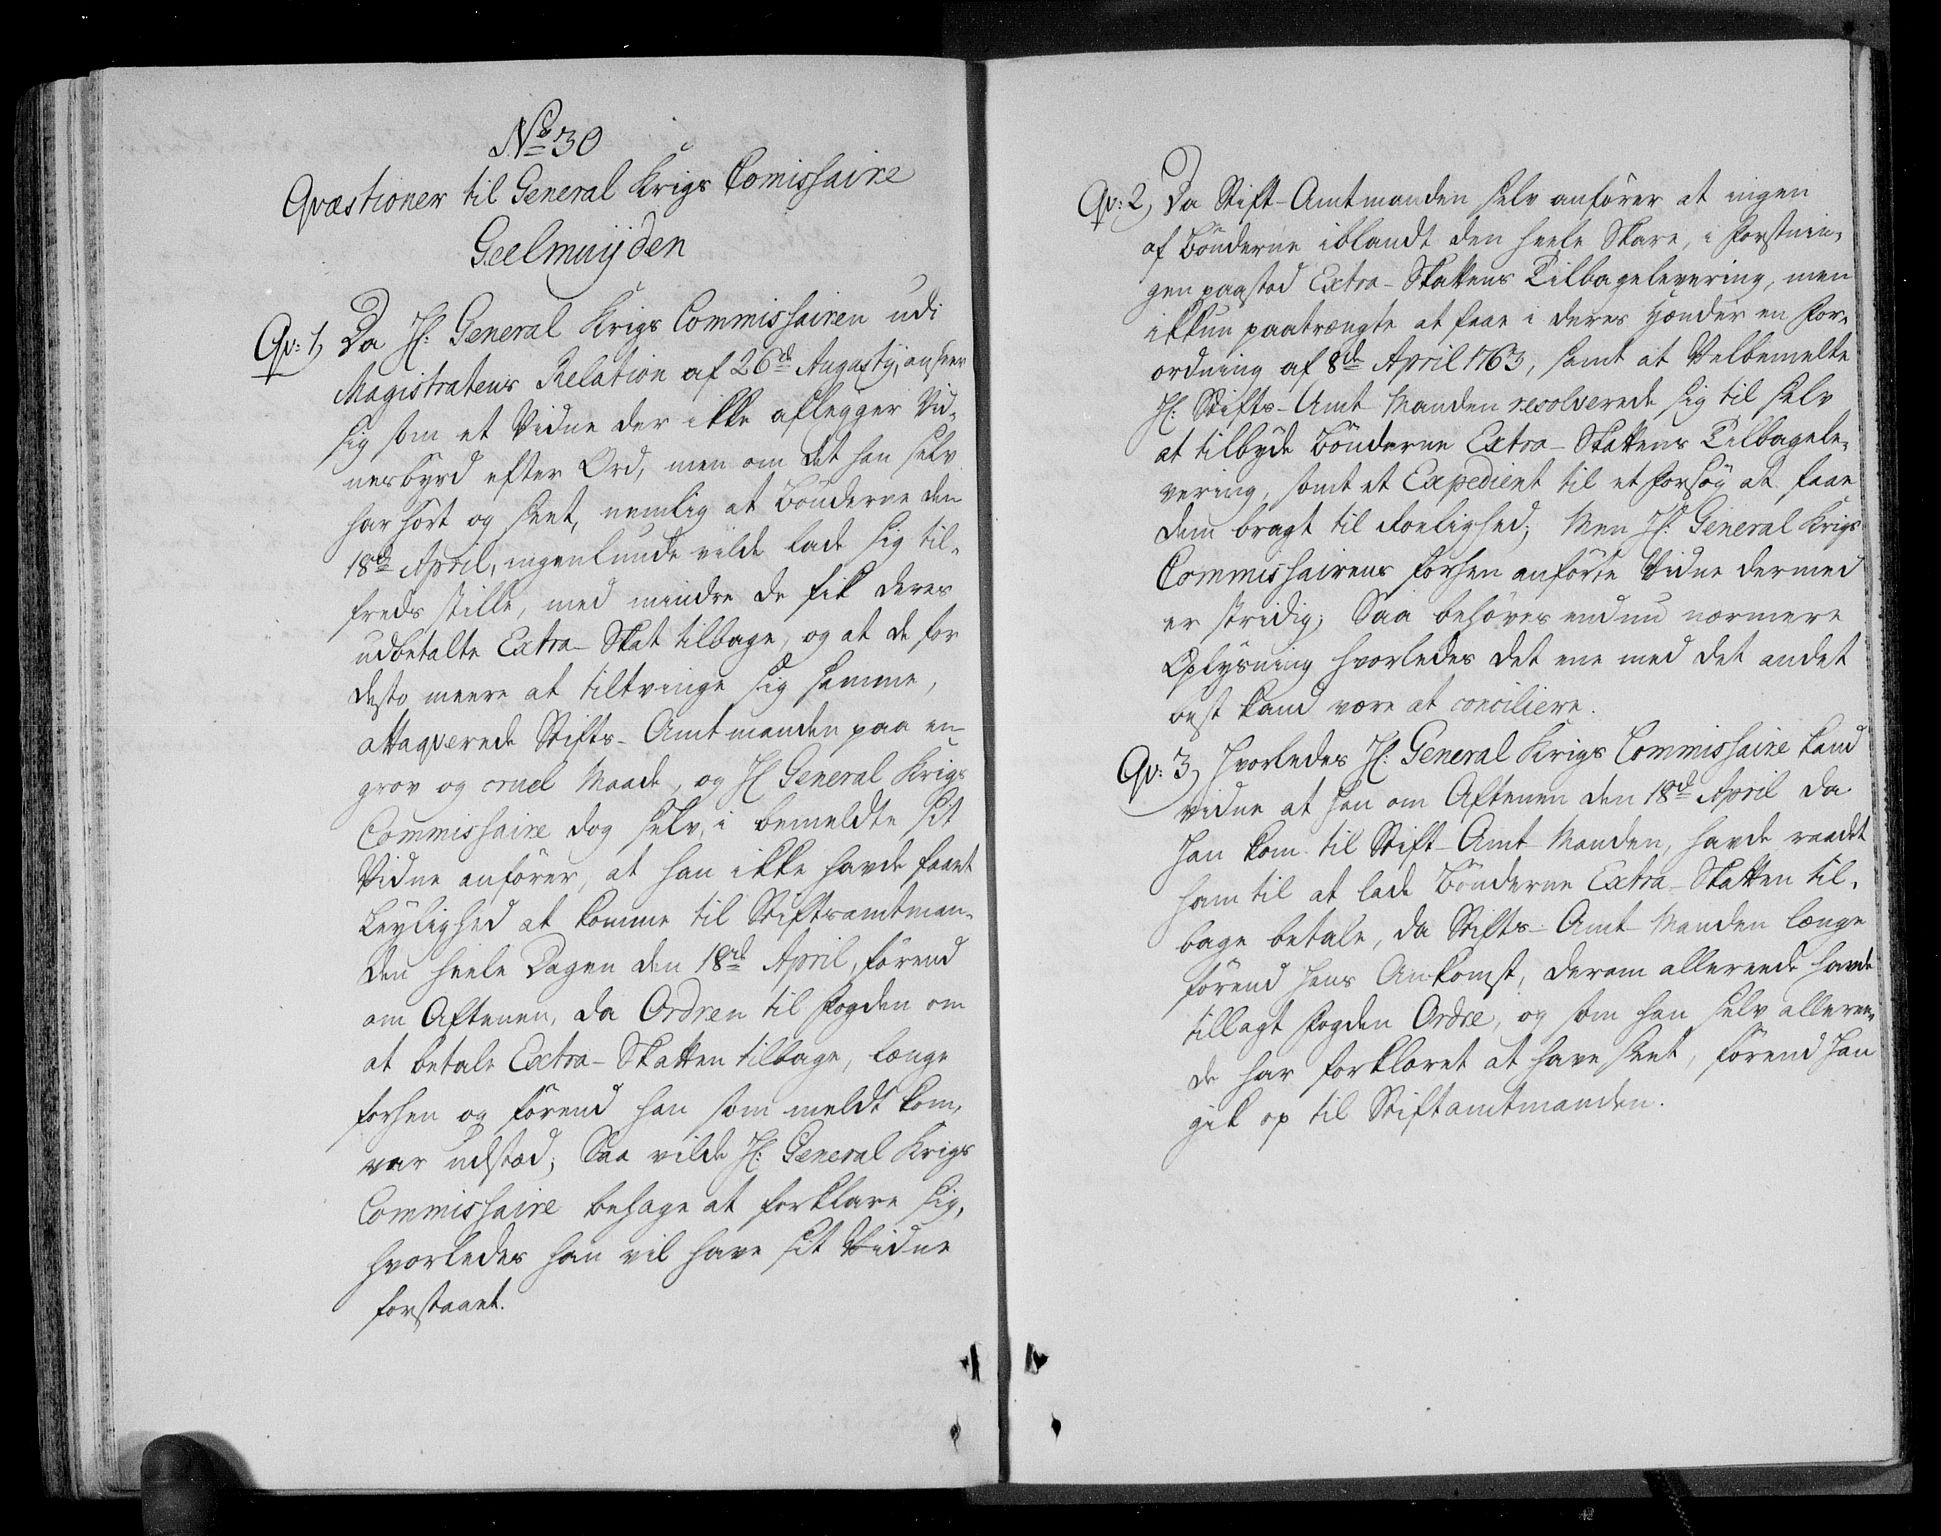 No 30
Qvæstioner til General Krigs Comissaire
Geelmuijden
Qv: 1, Da H: General Krigs Commissairen udi
Magistratens Relation af 26de Augustij, anseer
sig som et Vidne der ikke aflegger Vid-
nesbyrd efter Ord, men om det han selv
har hört og seet, nemlig at Bönderne den
18de April, ingenlunde vilde lade sig til-
freds stille, med mindre de fik deres
udbetalte Extra-Skat tilbage, og at de for
desto meere at tiltvinge sig samme,
attaqverede Stifts-Amtmanden paa en
grov og cruel Maade, og H General Krigs
Commissaire dog selv, i bemeldte sit
Vidne anförer, at han ikke havde faaet
Leylighed at komme til Stiftsamtman-
den heele Dagen den 18de April, förend
om Aftenen, da Ordren til Fogden om
at betale Extra-Skatten tilbage, længe
forhen og förend han som meldt kom,
var udstæd; Saa vilde H: General Krigs
Commissaire behage at forklare sig,
hvorledes han vil have sit Vidne
forstaaet.
Qv: 2, Da Stift-Amtmanden selv anförer at ingen
af Bönderne iblandt den heele Skare, i Forstnin-
gen paastod Extra-Skattens Tilbagelevering, men
ikkun paatrængte at faae i deres Hænder en For-
ordning af 8de April 1763, samt at Velbemelte
H: Stifts-Amt Manden resolverede sig til selv
at tilbyde Bönderne Extra-Skattens Tilbagele-
vering, somt et Expedient til et Forsög at faae
dem bragt til Roelighed; Men H: General Krigs
Commissairens forhen anförte Vidne dermed
er stridig; Saa behöves endnu nærmere
Oplysning hvorledes det ene med det andet
best kand være at conciliere.
Qv: 3, Hvorledes H: General Krigs Commissaire kand
vidne at han om Aftenen den 18de April da
han kom til Stift-Amt-Manden, havde raadet
ham til at lade Bönderne Extra-Skatten til-
bage betale, da Stifts-Amt-Manden længe
förend hans Ankomst, derom allereede havde
tillagt Fogden Ordre, og som han selv alleree-
de har forklaret at have seet, förend han
gik op til Stiftamtmanden.